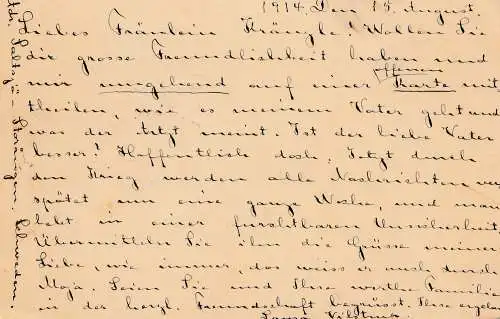 1914. Den 15. August.
Liebes Fräulein Kränzle! Wollen Sie
die grosse Freundlichkeit haben und
mir umgehend auf einer offenen Karte mit
theilen, wie es meinem Vater geht und
was der Arzt meint. Ist der liebe Vater
besser? Hoffentlich doch. Jetzt durch
den Krieg werden alle Nachrichten ver
spätet um eine ganze Woche, und man
lebt in einer furchtbaren Unsicherheit.
Übermitteln Sie ihm die Grüsse meiner
Liebe, wie immer, das weiss er auch durch
Moja. Seien Sie und Ihre werthe Familie
in der herzl. Freundschaft begrüsst. Ihre ergebene
Saltsjö-Storängen. Schweden.